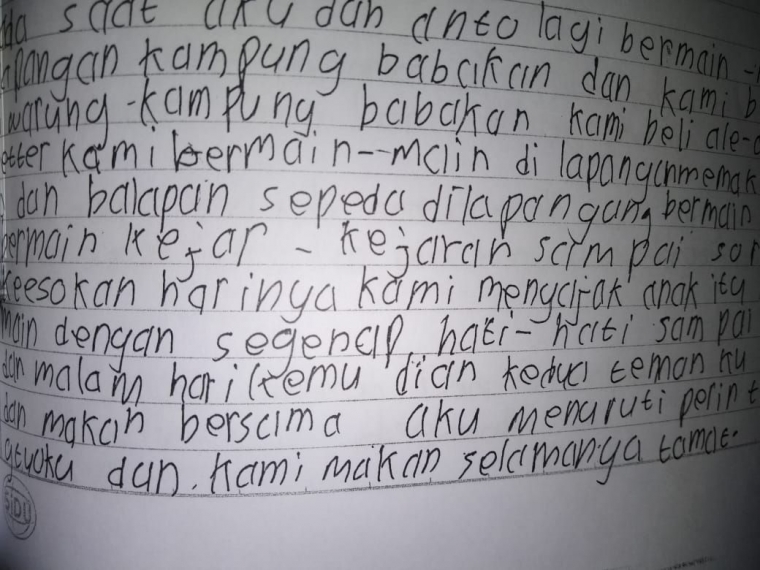 da saat aku dan anto lagi bermain -
apangan kampung babakan dan kami b
warung-kampung babakan kami beli ale-a
etter kami bermain--main di lapanganmemak
dan balapan sepeda dilapangang bermain
bermain kejar - kejaran sampai sor
keesokan harinya kami mengajak anak itu
main dengan segenap hati-hati sampai
dan malam hari temu dian kedua temanku
dan makan bersama aku menuruti perint
ayoku dan. kami makan selamanya tamat.
SIDU